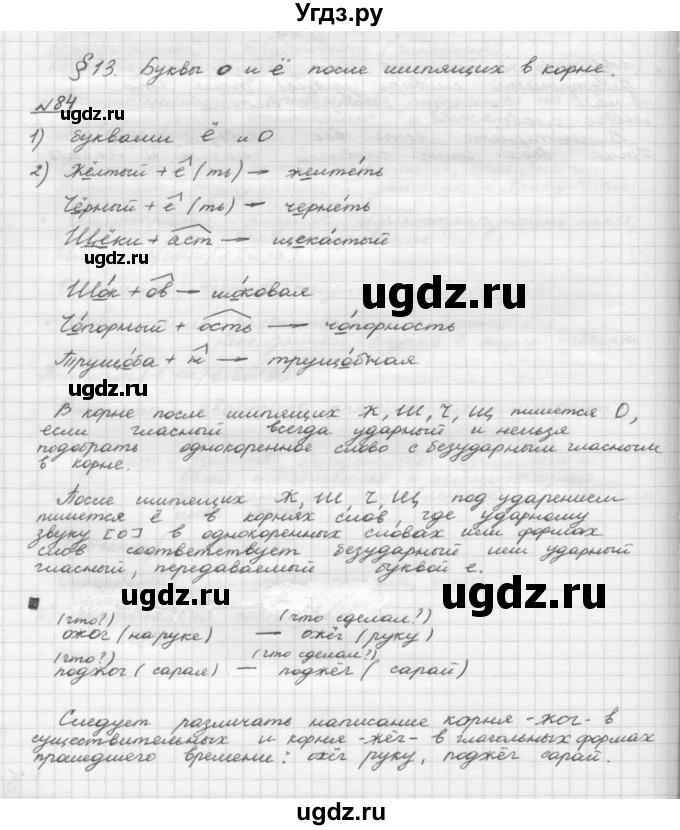 Угдз.ру
§13. Буквы о и ё после шипящих в корне.
№84
1) Буквами Ё и О
2) Жёлтый + е (ть) → желтеть
Чёрный + е (ть) → чернеть
Щёки + аст → щекастый
Шок + ов → шоковая
Чопорный + ость → чопорность
Трущоба + н → трущобная
В корне после шипящих Ж, Ш, Ч, Щ пишется О,
если гласный всегда ударный и нельзя
подобрать однокоренное слово с безударным гласным
в корне.
После шипящих Ж, Ш Ч, Щ под ударением
пишется ё в корнях слов, где ударному
звуку [о] в однокоренных словах или формах
слов соответствует безударный или ударный
гласный, передаваемый буквой е.
(что?) (что сделал?)
ожог (на руке) — ожёг (руку)
(что?) (что сделал?)
поджог (сарая) — поджёг (сарай)
Следует различать написание корня -жог- в
существительных и корня -жёг- в глагольных формах
прошедшего времени: ожёг руку, поджёг сарай.
ugdz.ru
ugdz.ru
ugdz.ru
ugdz.ru
ugdz.ru
ugdz.ru
ugdz.ru
ugdz.ru